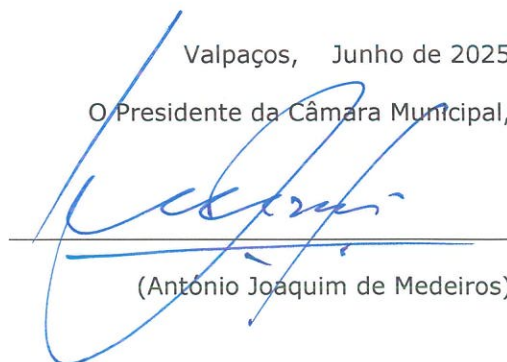 Valpaços, Junho de 2025
O Presidente da Câmara Municipal,
(António Joaquim de Medeiros)